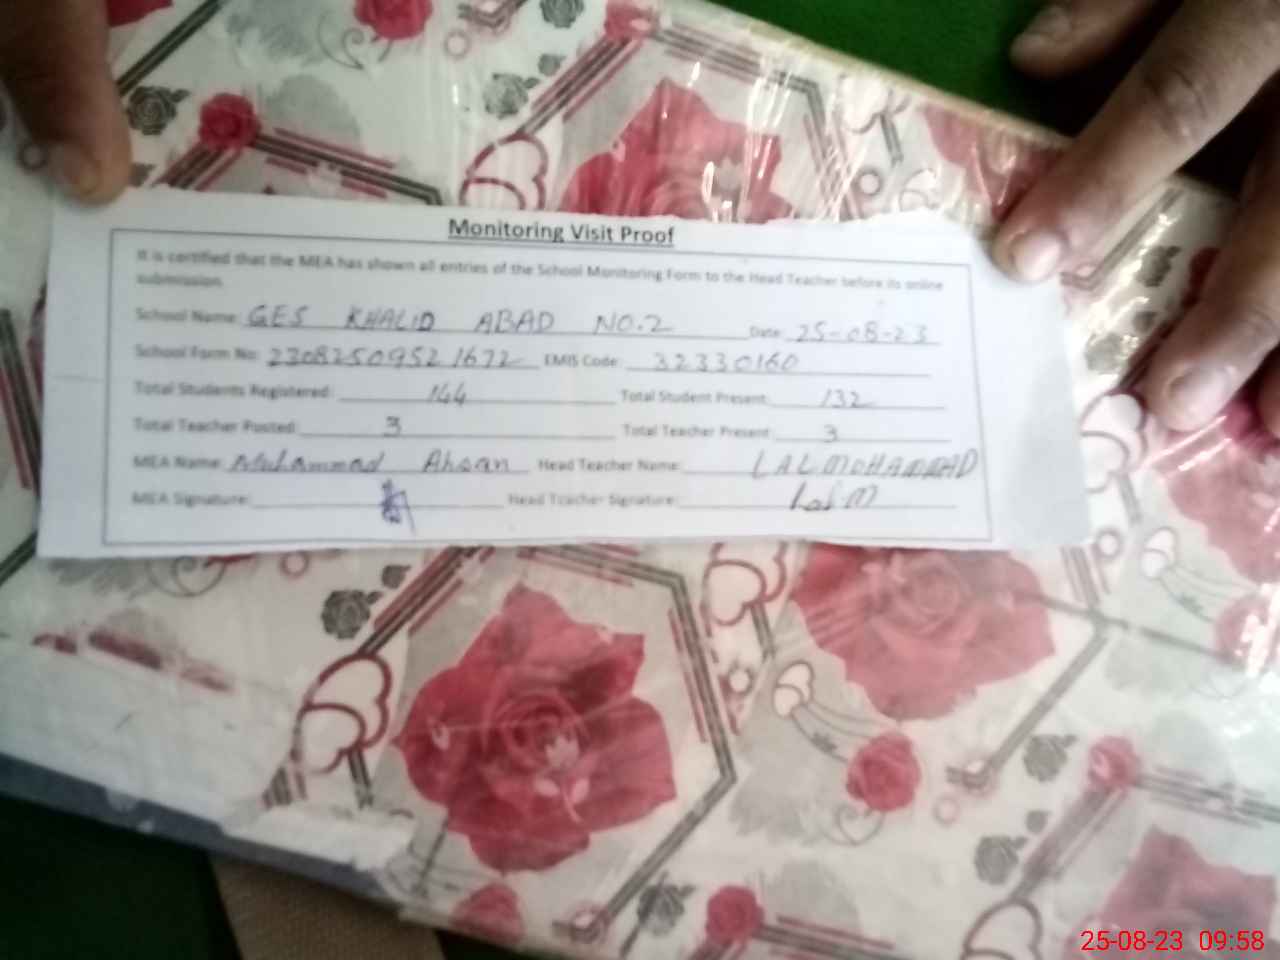 Monitoring Visit Proof
It is certified that the MEA has shown all entries of the School Monitoring Form to the Head Teacher before its online
submission.
School Name: GES KHALID ABAD NO.2 Date: 25-08-23
School Form No: 23082509521672 EMIS Code: 32330160
Total Students Registered: 144 Total Student Present: 132
Total Teacher Posted: 3 Total Teacher Present: 3
MEA Name: Muhammad Ahsan Head Teacher Name: LAL MOHAMMAD
MEA Signature: Head Teacher Signature: Lal M
25-08-23 09:58